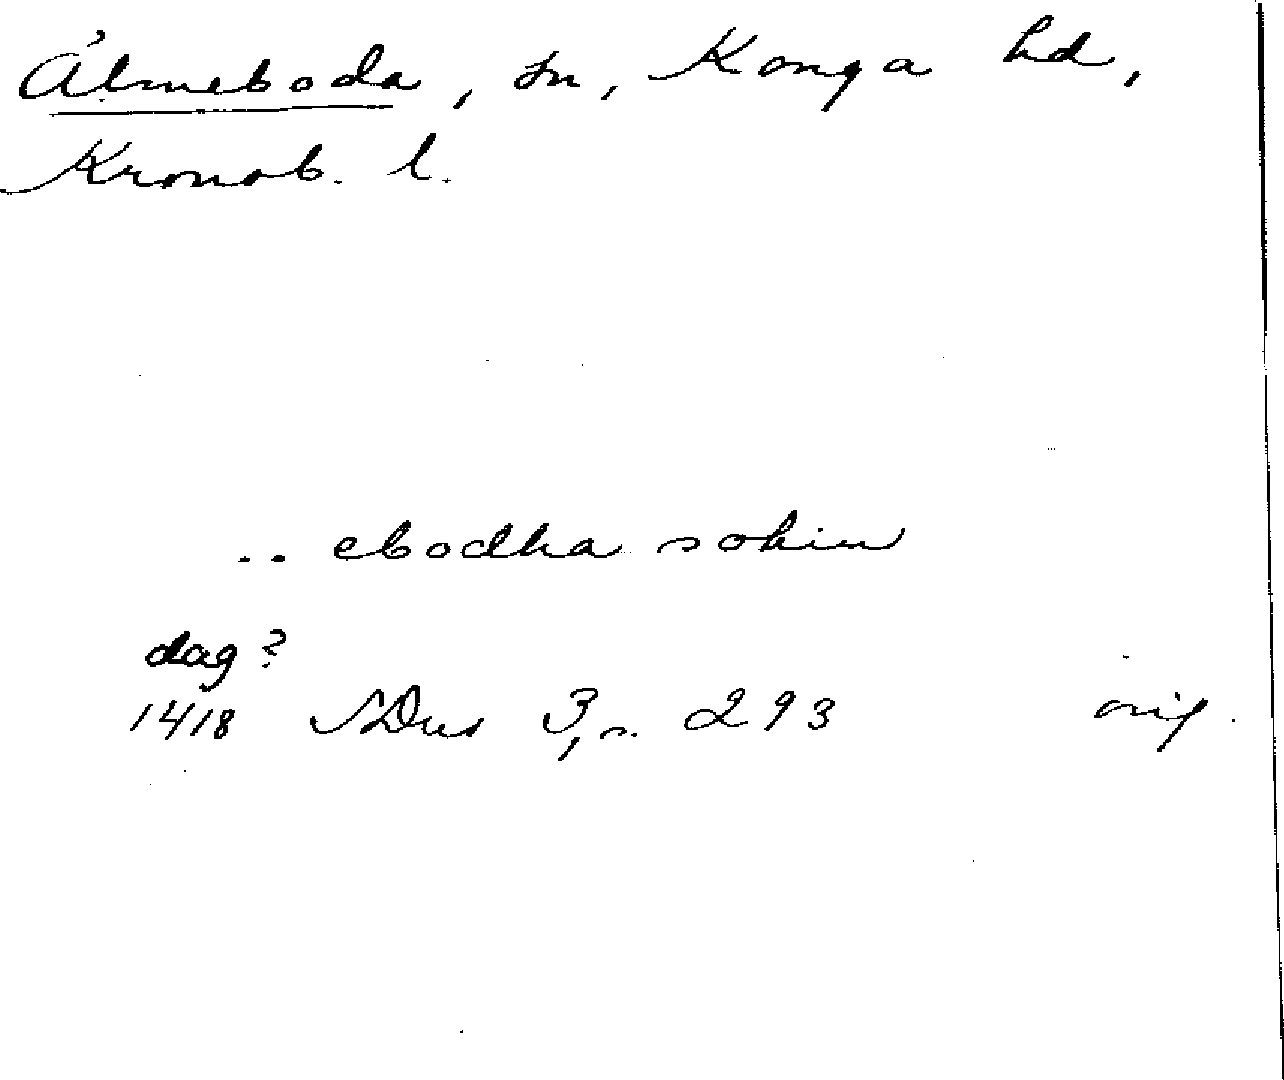 Älmeboda, sn, Konga hd,
Kronob. l.
.. ebodha sokin
dag?
1418 SDns 3, s. 293 orig.